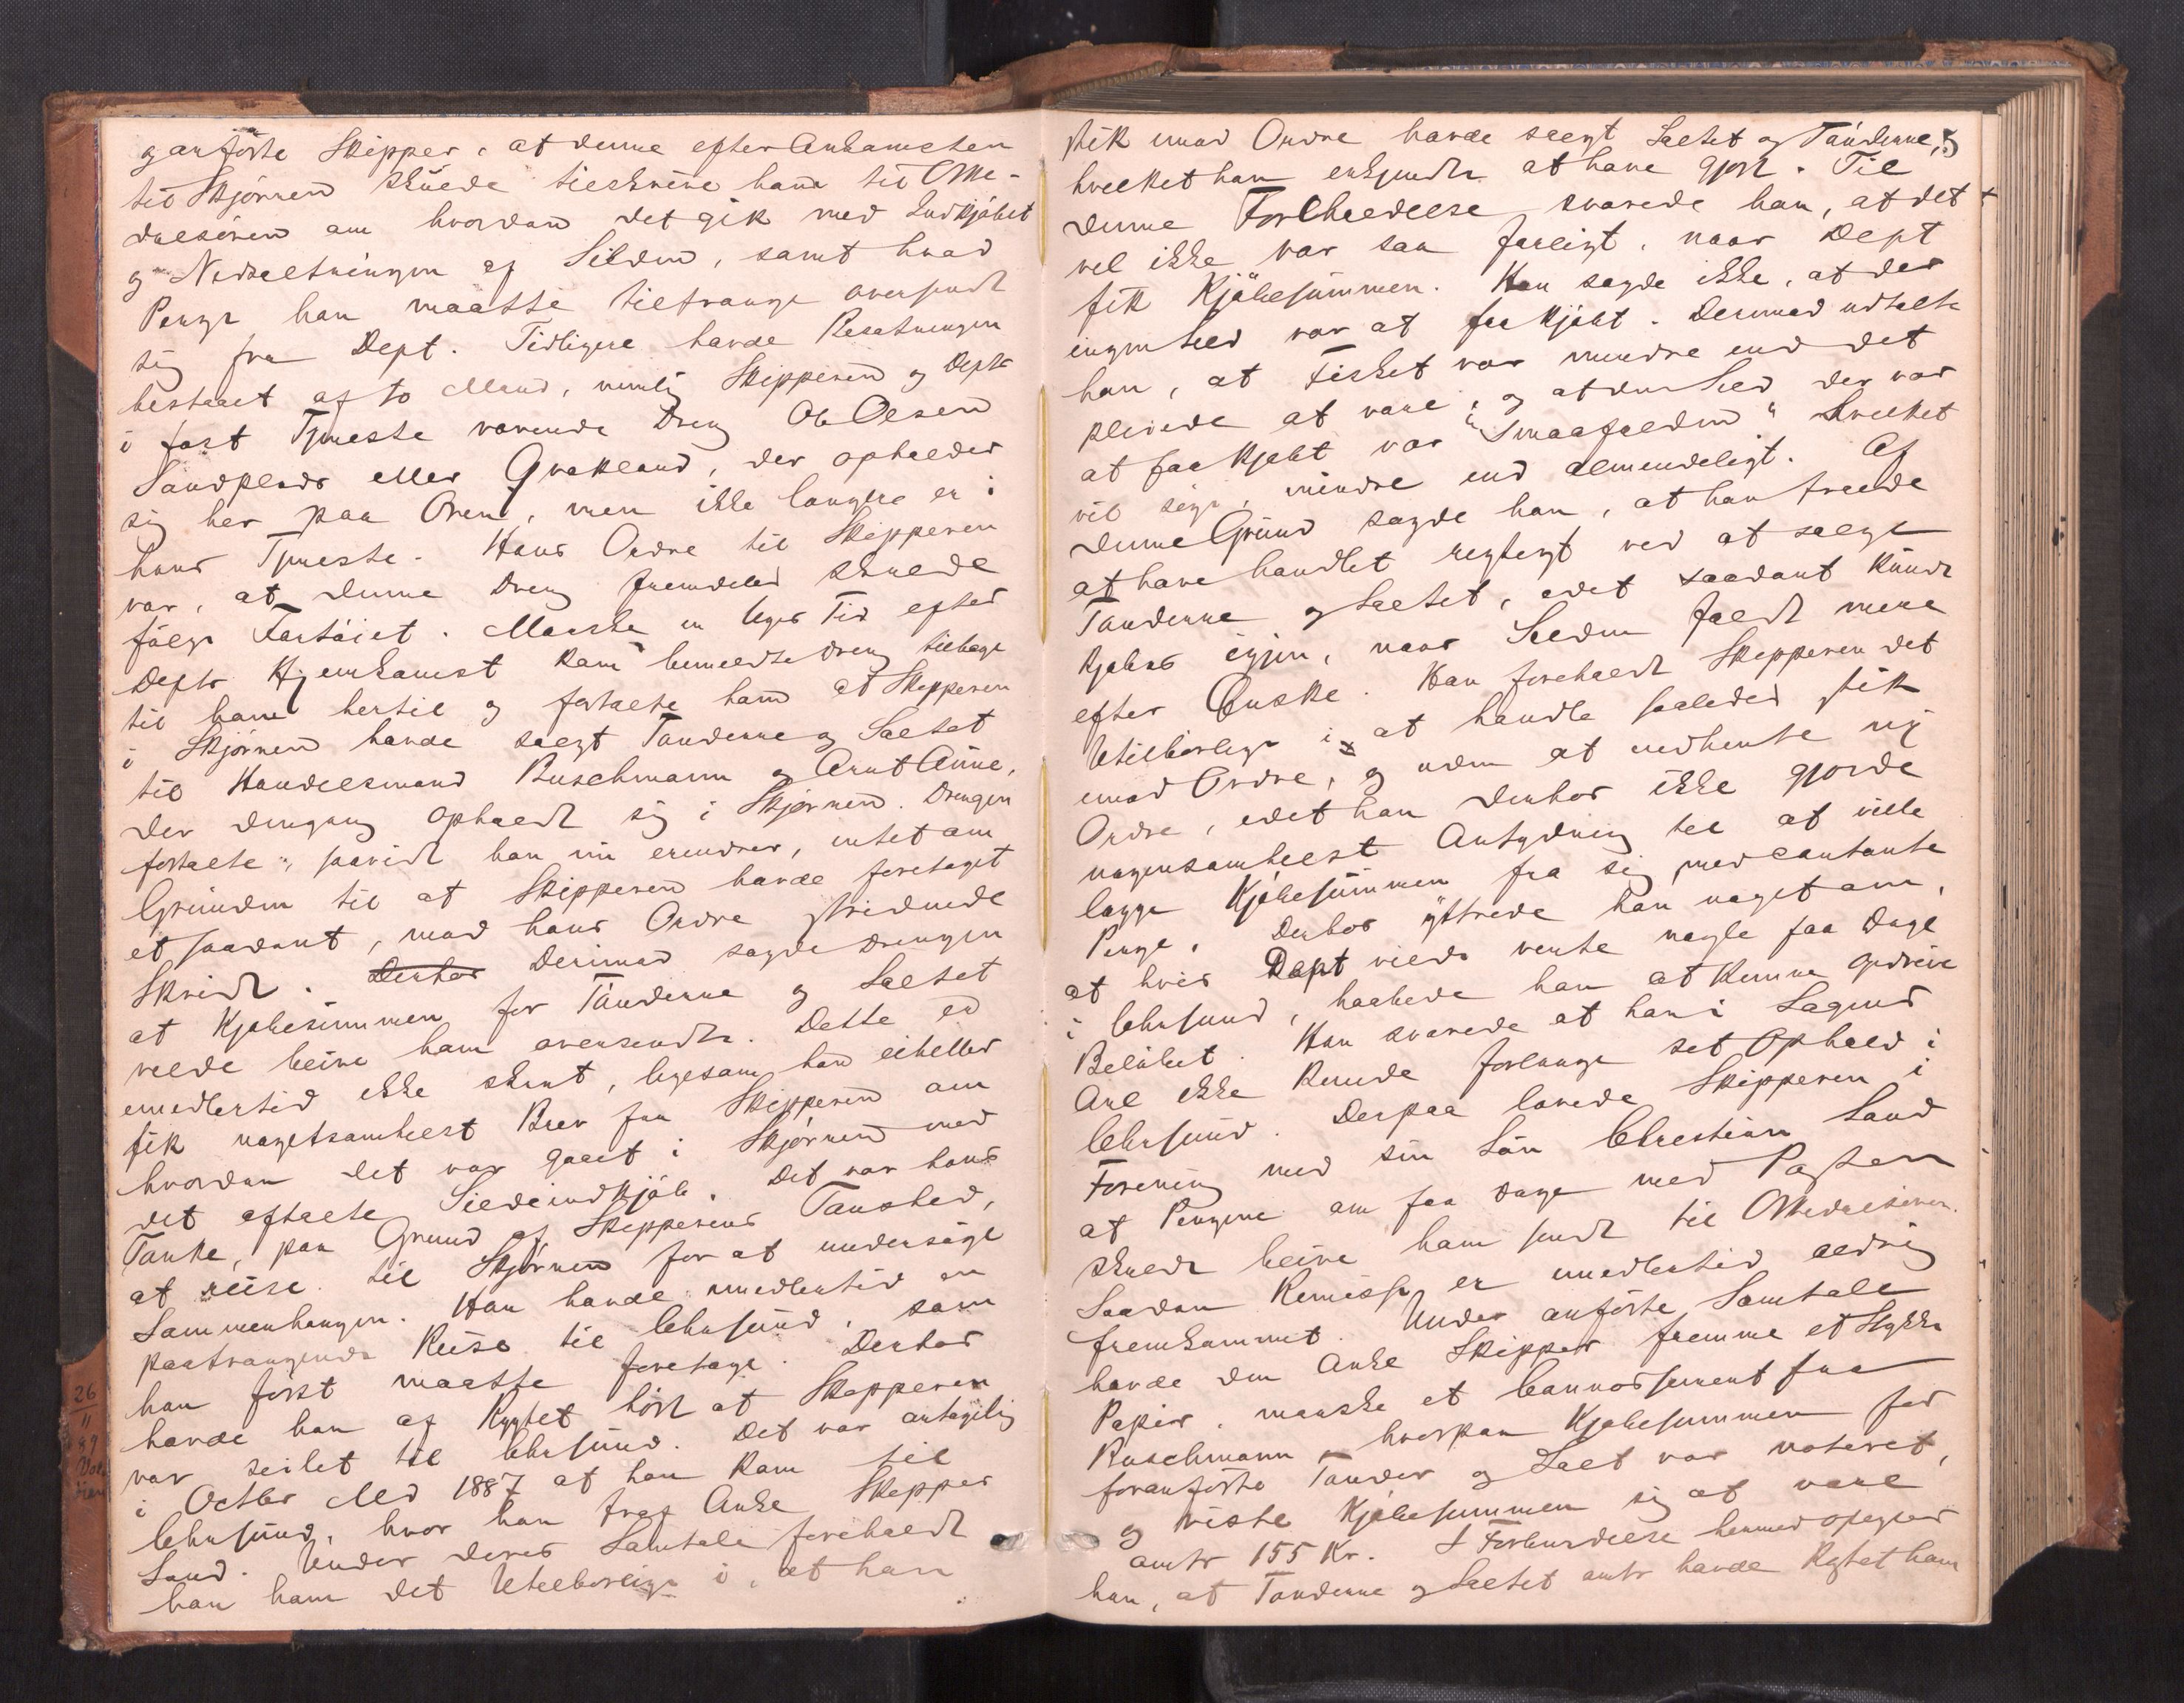 g anførte Skipper, at denne efter Ankomsten
til Skjørnen skulde tilskrive ham til Me-
dalsøren om hvordan det gik med Indkjøbet
og Nedsaltningen af Silden, samt hvad
Penge han maatte tiltrænge oversendt
sig fra Dept. Tidligere havde Besætningen
bestaaet af to Mand, nemlig Skipperen og Depts
i fast Tjeneste værende Dreng Ole Olsen
Sandplads eller Grakland, der opholder
sig her paa Øren, men ikke længere er i
hans Tjeneste. Hans Ordre til Skipperen
var, at denne Dreng fremdeles skulde
følge Fartøiet. Maaske en Uges Tid efter
Depts Hjemkomst kom bemeldte Dreng tilbage
til ham hertil og fortalte ham at Skipperen
i Skjørnen havde solgt Tønderne og Saltet
til Handelsmand Buschmann og Arnt Aune,
der dengang opholdt sig i Skjørnen. Drengen
fortalte, saavidt han nu erindrer, intet om
Grunden til at Skipperen havde foretaget
et saadant, mod hans Ordre stridende
Skridt. Derhos Derimod sagde Drengen
at Kjøbesummen for Tønderne og Saltet
vilde blive ham oversendt. Dette er
imidlertid ikke skeet, ligesom han eiheller
fik nogetsomhelst Brev fra Skipperen om
hvordan det var gaaet i Skjørnen med
det aftalte Sildeindkjøb. Det var hans
Tanke, paa Grund af Skipperens Taushed,
at reise til Skjørnen for at undersøge
Sammenhængen. Han havde imidlertid en
paatrængende Reise til Lehnsund, som
han først maatte foretage. Derhos
havde han af Rygtet hørt at Skipperen
var seilet til Lehnsund. Det var antagelig
i Octbr Md 1887 at han kom til
Lehnsund, hvor han traf Anke Skipper
Sand. Under deres Samtale foreholdt
han ham det Utilbørlige i, at han
26
11
89
stik imod Ordre havde solgt Saltet og Tønderne, 5
hvilket han erkjendte at have gjort. Til
denne Foreholdelse svarede han, at det +
vel ikke var saa farligt, naar Dept
fik Kjøbesummen. Han sagde ikke, at der
ingen Sild var at faa kjøbt. Derimod udtalte
han, at Fisket var mindre end det
pleiede at være, og at den Sild der var
at faa kjøbt var "Smaafalden" hvilket
vil sige, mindre end almindeligt. Af
denne Grund sagde han, at han troede
at have handlet rigtigt ved at sælge
Tønderne og Saltet, idet saadant kunde
kjøbes igjen, naar Silden faldt mere
efter Ønske. Han foreholdt Skipperen det
Utilbørlige i at handle saaledes stik
imod Ordre, og uden at indhente ny
Ordre, idet han derhos ikke gjorde
nogensomhelst Antydning til at ville
lægge Kjøbesummen fra sig med contante
Penge. Derhos yttrede han noget om,
at hvis Dept vilde vente nogle faa Dage
i Lehnsund, haabede han at kunne opdrive
Beløbet. Han svarede at han i Sagens
Anl ikke kunde forlænge sit Ophold i
Lehnsund. Derpaa lovede Skipperen i
Forening med sin Søn Christian Sand
at Pengene om faa Dage med Posten
skulde blive ham sendt til Medalsøren.
Saadan Remisse er imidlertid aldrig
fremkommet. Under anførte Samtale
havde den Anke Skipper fremme et Stykke
Papir, maaske et Connossement fra
Buschmann, hvorpaa Kjøbesummen for
foranførte Tønder og Salt var noteret,
og viste Kjøbesummen sig at være
omtr 155 Kr. I Forbindelse hermed opgiver
han, at Tønderne og Saltet omtr havde kostet ham